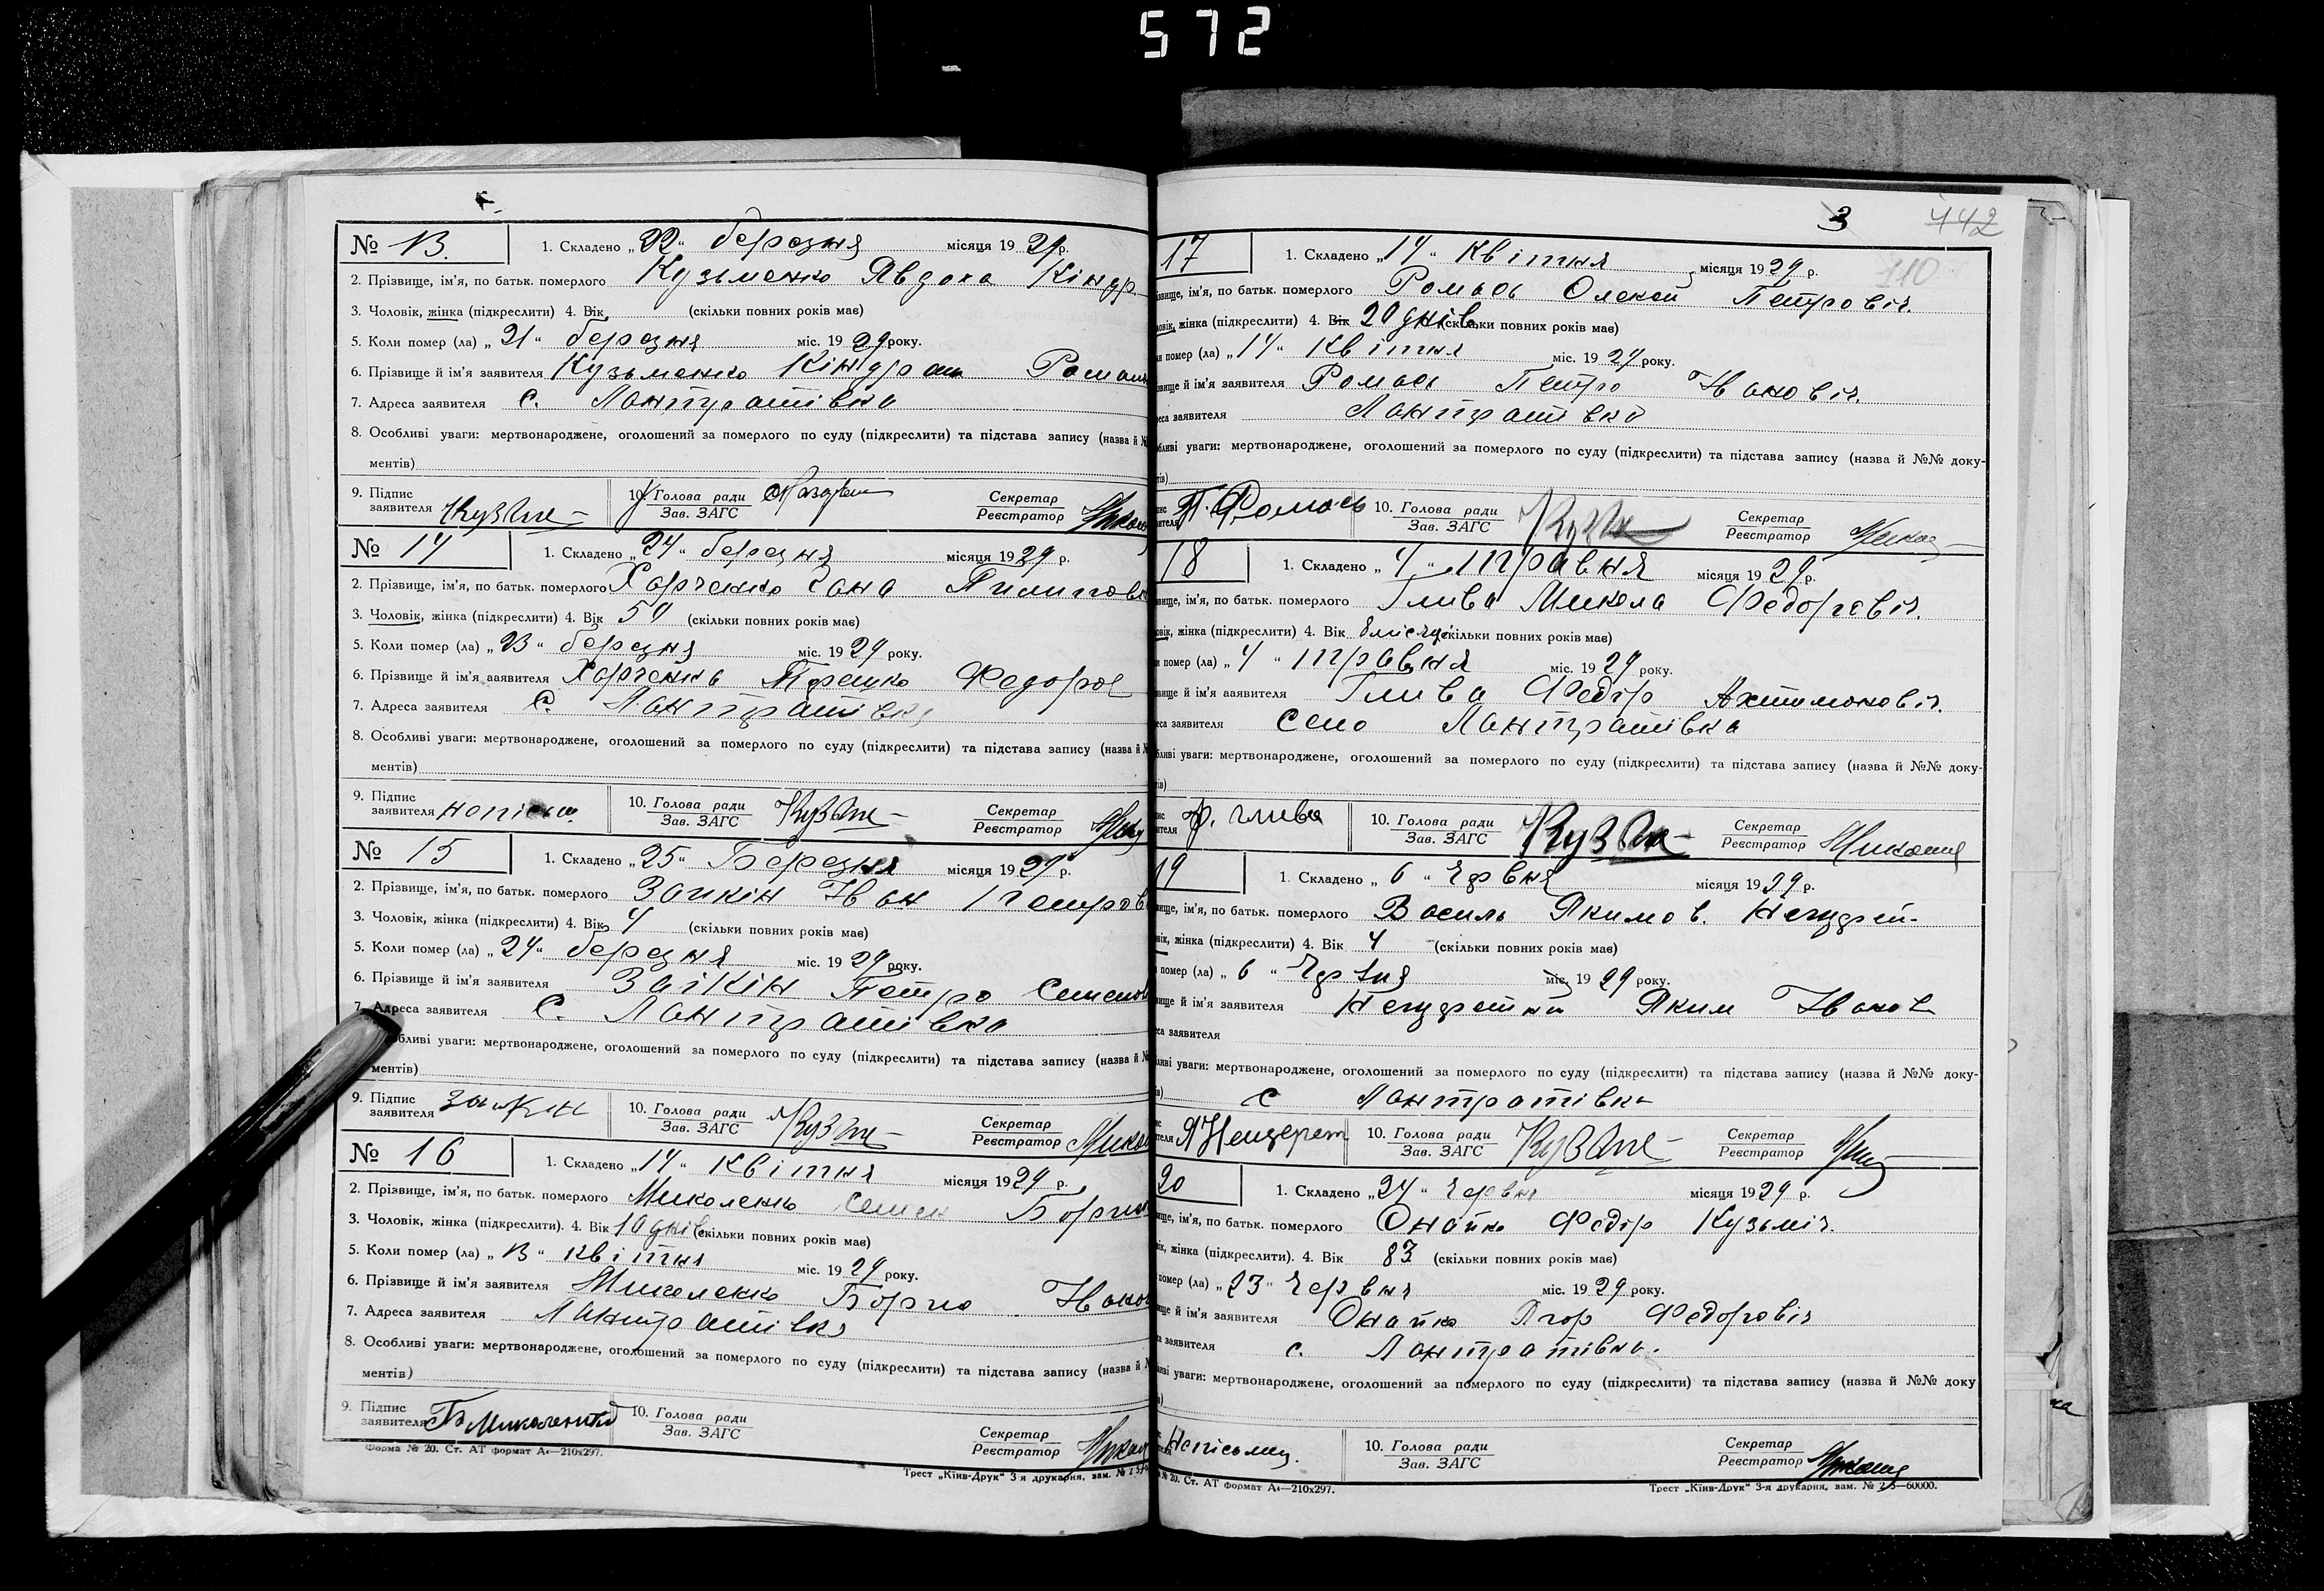 572
№ 13. 1. Складено „22“ березня місяця 1929 р.
2. Прізвище, ім'я, по батьк. померлого Кузьменко Явдоха Кіндр
3. Чоловік, жінка (підкреслити) 4. Вік (скільки повних років має)
5. Коли помер (ла) „21“ березня міс. 1929 року.
6. Прізвище й ім'я заявителя Кузьменко Кіндрат Роман
7. Адреса заявителя с. Лантратівка
8. Особливі уваги: мертвонароджене, оголошений за померлого по суду (підкреслити) та підстава запису (назва й №
ментів)
9. Підпис заявителя 10. Голова ради Зав. ЗАГС Секретар Реєстратор
№ 14 1. Складено „24“ березня місяця 1929 р.
2. Прізвище, ім'я, по батьк. померлого Харченко
3. Чоловік, жінка (підкреслити) 4. Вік 54 (скільки повних років має)
5. Коли помер (ла) „23“ березня міс. 1929 року.
6. Прізвище й ім'я заявителя Харченко Федоров
7. Адреса заявителя с. Лантратівка
8. Особливі уваги: мертвонароджене, оголошений за померлого по суду (підкреслити) та підстава запису (назва й №
ментів)
9. Підпис заявителя 10. Голова ради Зав. ЗАГС Секретар Реєстратор
№ 15 1. Складено „25“ Березня місяця 1929 р.
2. Прізвище, ім'я, по батьк. померлого Заікін Іван Петров
3. Чоловік, жінка (підкреслити) 4. Вік 4 (скільки повних років має)
5. Коли помер (ла) „24“ березня міс. 1929 року.
6. Прізвище й ім'я заявителя Заікін Петро Семенов
7. Адреса заявителя с. Лантратівка
бливі уваги: мертвонароджене, оголошений за померлого по суду (підкреслити) та підстава запису (назва й №
ментів)
9. Підпис заявителя 10. Голова ради Зав. ЗАГС Секретар Реєстратор
№ 16 1. Складено „14“ квітня місяця 1929 р.
2. Прізвище, ім'я, по батьк. померлого Миколенко Семен
3. Чоловік, жінка (підкреслити). 4. Вік 10 днів (скільки повних років має)
5. Коли помер (ла) „13“ квітня міс. 1929 року.
6. Прізвище й ім'я заявителя Миколенко Іванов
7. Адреса заявителя Лантратівка
8. Особливі уваги: мертвонароджене, оголошений за померлого по суду (підкреслити) та підстава запису (назва й №
ментів)
9. Підпис заявителя Б Миколенко 10. Голова ради Зав. ЗАГС Секретар Реєстратор
Форма № 20. Ст. АТ формат А4—210x297.
Трест „Київ-Друк“ 3-я друкарня, зам. №
3 442
110
17 1. Складено „14“ Квітня місяця 1929 р.
звище, ім'я, по батьк. померлого Ромась Олексій Петровіч.
ловік, жінка (підкреслити) 4. Вік 20 днів (скільки повних років має)
и помер (ла) „14“ Квітня міс. 1929 року.
звище й ім'я заявителя Ромась Петро Івановіч.
еса заявителя Лантратівка
бливі уваги: мертвонароджене, оголошений за померлого по суду (підкреслити) та підстава запису (назва й №№ доку-
тів)
П. Ромась 10. Голова ради Зав. ЗАГС Секретар Реєстратор
18 1. Складено „4“ травня місяця 1929 р.
звище, ім'я, по батьк. померлого Глива Микола Федоровіч.
овік, жінка (підкреслити) 4. Вік 8 місяц (скільки повних років має)
и помер (ла) „4“ травня міс. 1929 року.
звище й ім'я заявителя Глива Федір Ахтимоновіч.
еса заявителя село Лантратівка
бливі уваги: мертвонароджене, оголошений за померлого по суду (підкреслити) та підстава запису (назва й №№ доку-
тів)
ф. глива 10. Голова ради Зав. ЗАГС Секретар Реєстратор
19 1. Складено „6“ Червня місяця 1929 р.
вище, ім'я, по батьк. померлого Василь Якимов.
вік, жінка (підкреслити) 4. Вік 4 (скільки повних років має)
помер (ла) „6“ Червня міс. 1929 року.
вище й ім'я заявителя Яким Іванов
са заявителя
ливі уваги: мертвонароджене, оголошений за померлого по суду (підкреслити) та підстава запису (назва й №№ доку-
ів) с Лантратівка
10. Голова ради Зав. ЗАГС Секретар Реєстратор
20 1. Складено „24“ Червня місяця 1929 р.
ище, ім'я, по батьк. померлого Онайко Федір Кузьміч.
ік, жінка (підкреслити). 4. Вік 83 (скільки повних років має)
помер (ла) „23“ Червня міс. 1929 року.
ище й ім'я заявителя Онайко Ягор Федоровіч
а заявителя с. Лантратівка.
иві уваги: мертвонароджене, оголошений за померлого по суду (підкреслити) та підстава запису (назва й №№ доку
Неписьмен. 10. Голова ради Зав. ЗАГС Секретар Реєстратор
№ 20. Ст. АТ формат А4—210x297.
Трест „Київ-Друк“ 3-я друкарня, зам. № —60000.